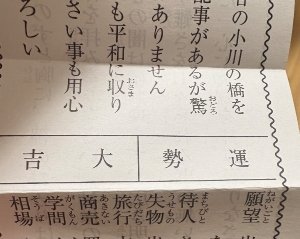 名の小川の橋を
記事があるが驚
ありません
も平和に収り
さい事も用心
ろしい
運勢
大吉
願望
待人
失物
旅行
商売
学問
相場